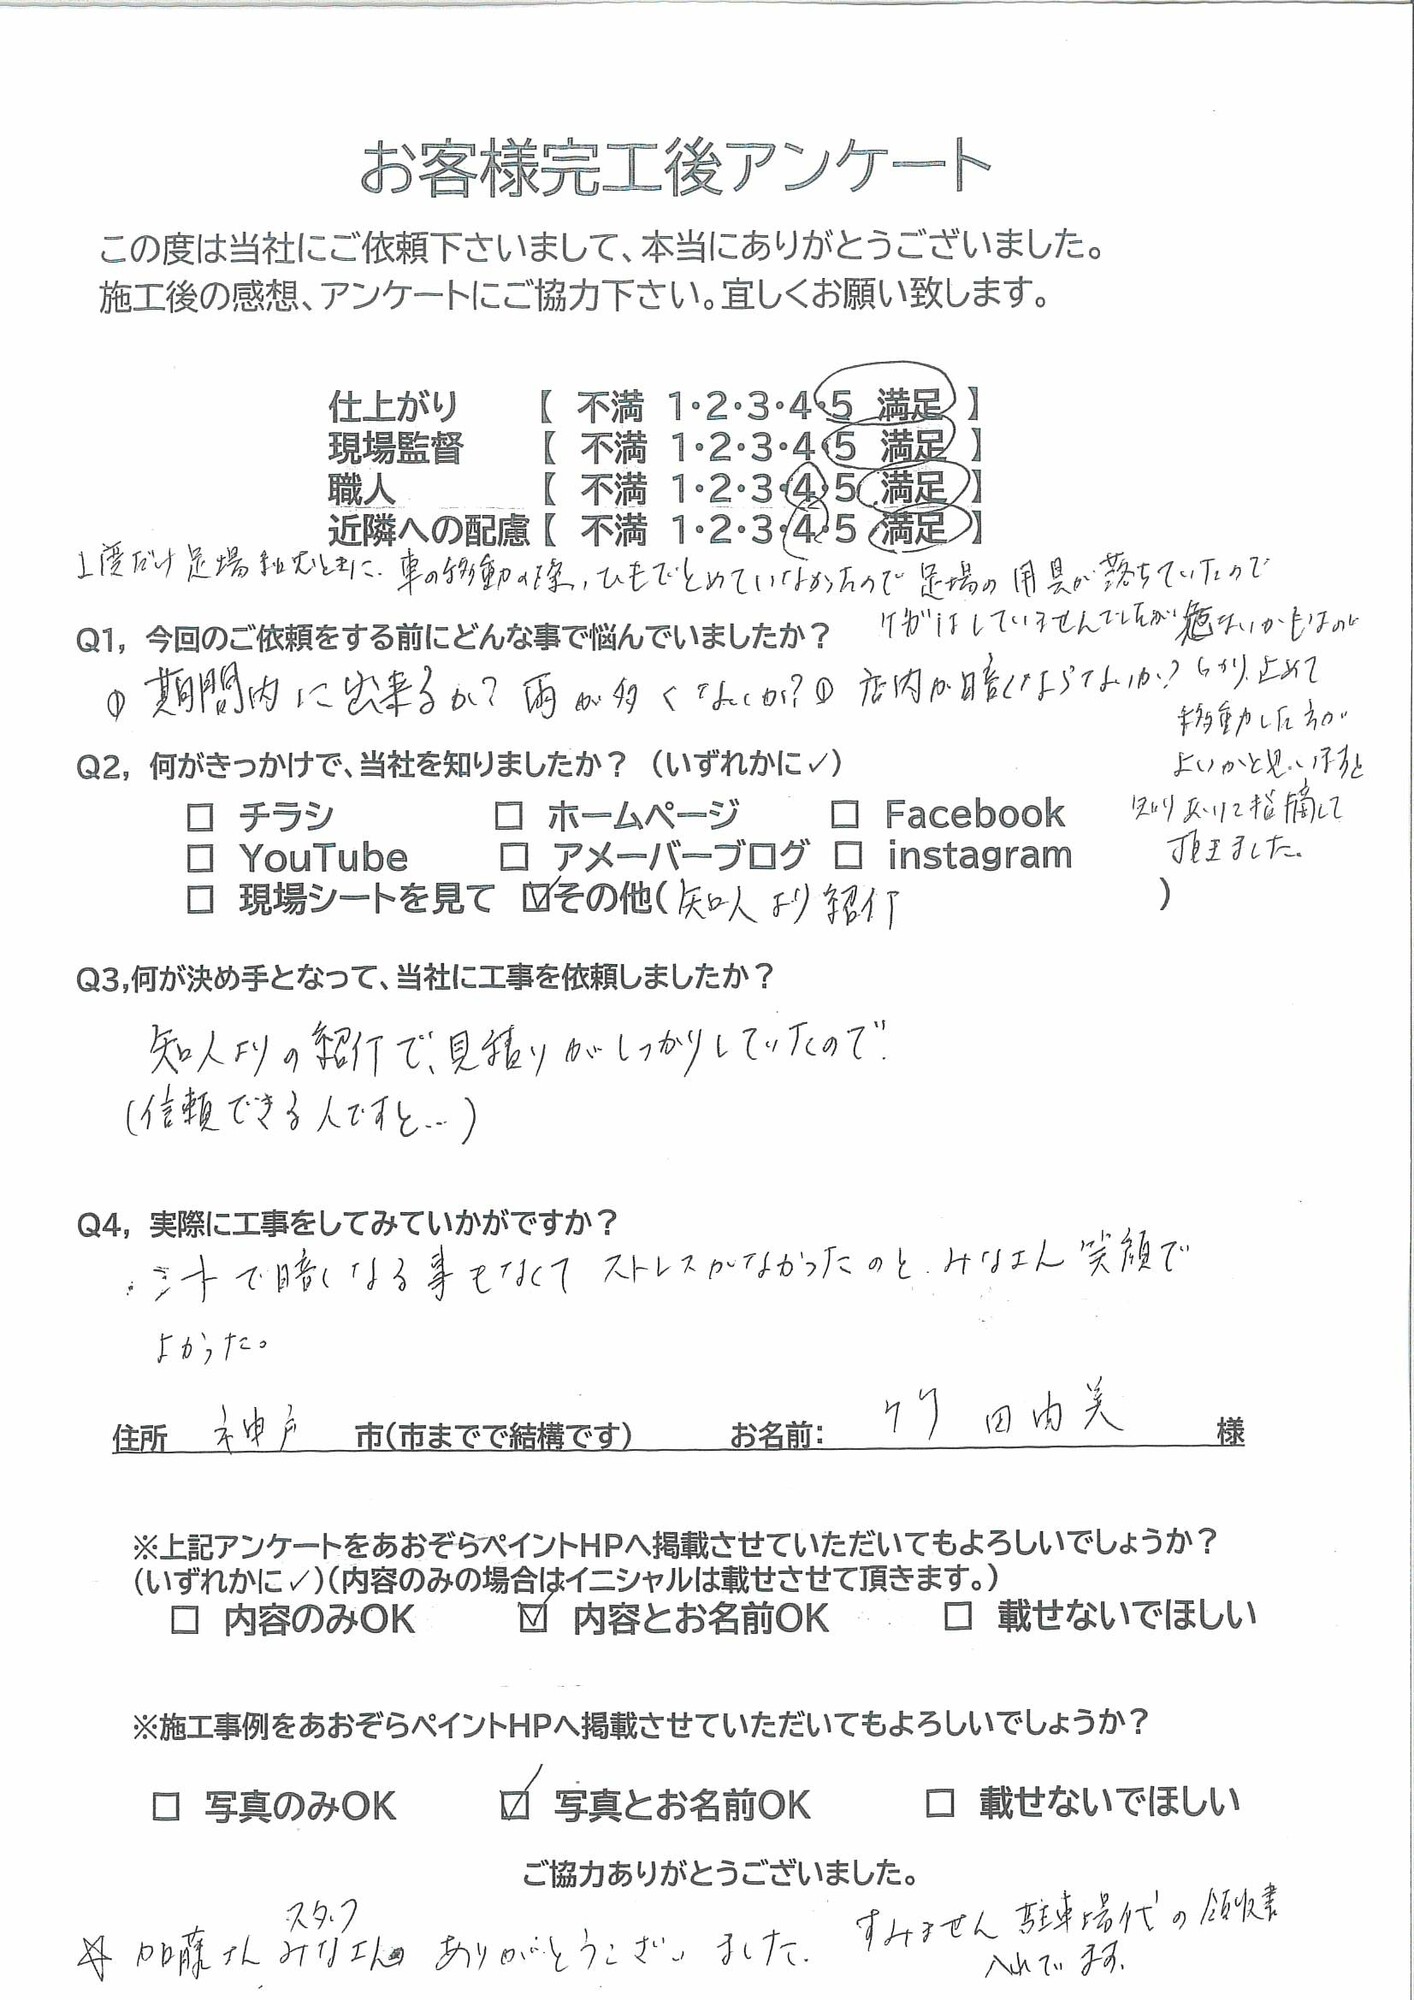 お客様完工後アンケート
この度は当社にご依頼下さいまして、本当にありがとうございました。
施工後の感想、アンケートにご協力下さい。宜しくお願い致します。
仕上がり 【 不満 1・2・3・4・5 満足 】
現場監督 【 不満 1・2・3・4・5 満足 】
職人 【 不満 1・2・3・4・5 満足 】
近隣への配慮【 不満 1・2・3・4・5 満足 】
1度だけ足場組むときに、車の移動の際、ひもでとめていなかったので足場の用具が落ちていたので
ケガはしていませんでしたが危ないかもなので
しっかり止めて
移動した方が
よいかと思いますと
知り合いに指摘して
頂きました。
Q1, 今回のご依頼をする前にどんな事で悩んでいましたか？
① 期間内に出来るか？ 雨が多くないか？① 店内が暗くならないか？
Q2, 何がきっかけで、当社を知りましたか？（いずれかに✓）
□ チラシ □ ホームページ □ Facebook
□ YouTube □ アメーバーブログ □ instagram
□ 現場シートを見て ☑その他(知人より紹介 )
Q3,何が決め手となって、当社に工事を依頼しましたか？
知人よりの紹介で、見積りがしっかりしていたので
(信頼できる人ですと…)
Q4, 実際に工事をしてみていかがですか？
シートで暗くなる事もなくて ストレスがなかったのと、みなさん笑顔で
よかった。
住所 神戸 市(市までで結構です) お名前: 竹田由美 様
※上記アンケートをあおぞらペイントHPへ掲載させていただいてもよろしいでしょうか？
(いずれかに✓)(内容のみの場合はイニシャルは載せさせて頂きます。)
□ 内容のみOK ☑ 内容とお名前OK □ 載せないでほしい
※施工事例をあおぞらペイントHPへ掲載させていただいてもよろしいでしょうか？
□ 写真のみOK ☑ 写真とお名前OK □ 載せないでほしい
ご協力ありがとうございました。
スタッフ
☆ 加藤さん みなさん ありがとうございました。
すみません 駐車場代の領収書
入れてます。